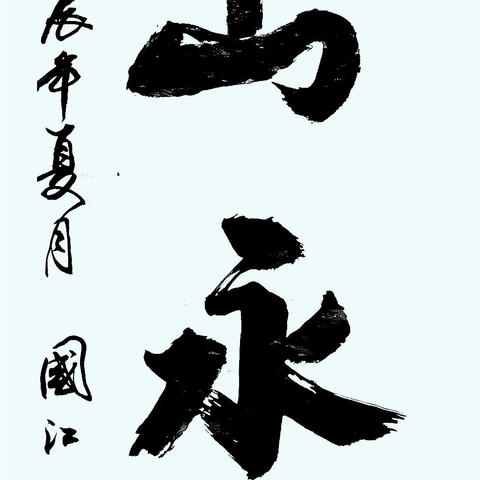 山永
辰年夏月 國江